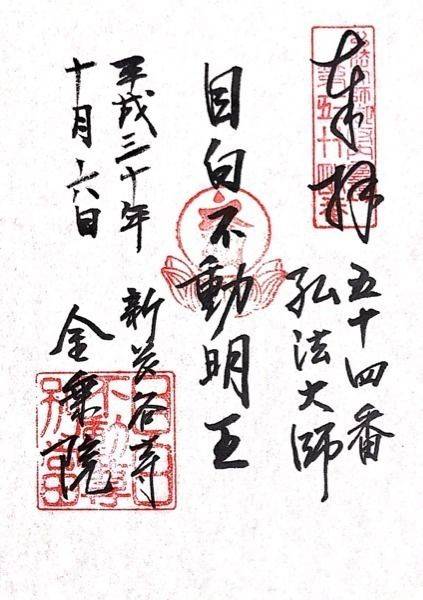 奉拝
五十四番
弘法大師
目白不動明王
平成三十年
十月六日
新長谷寺
金乗院